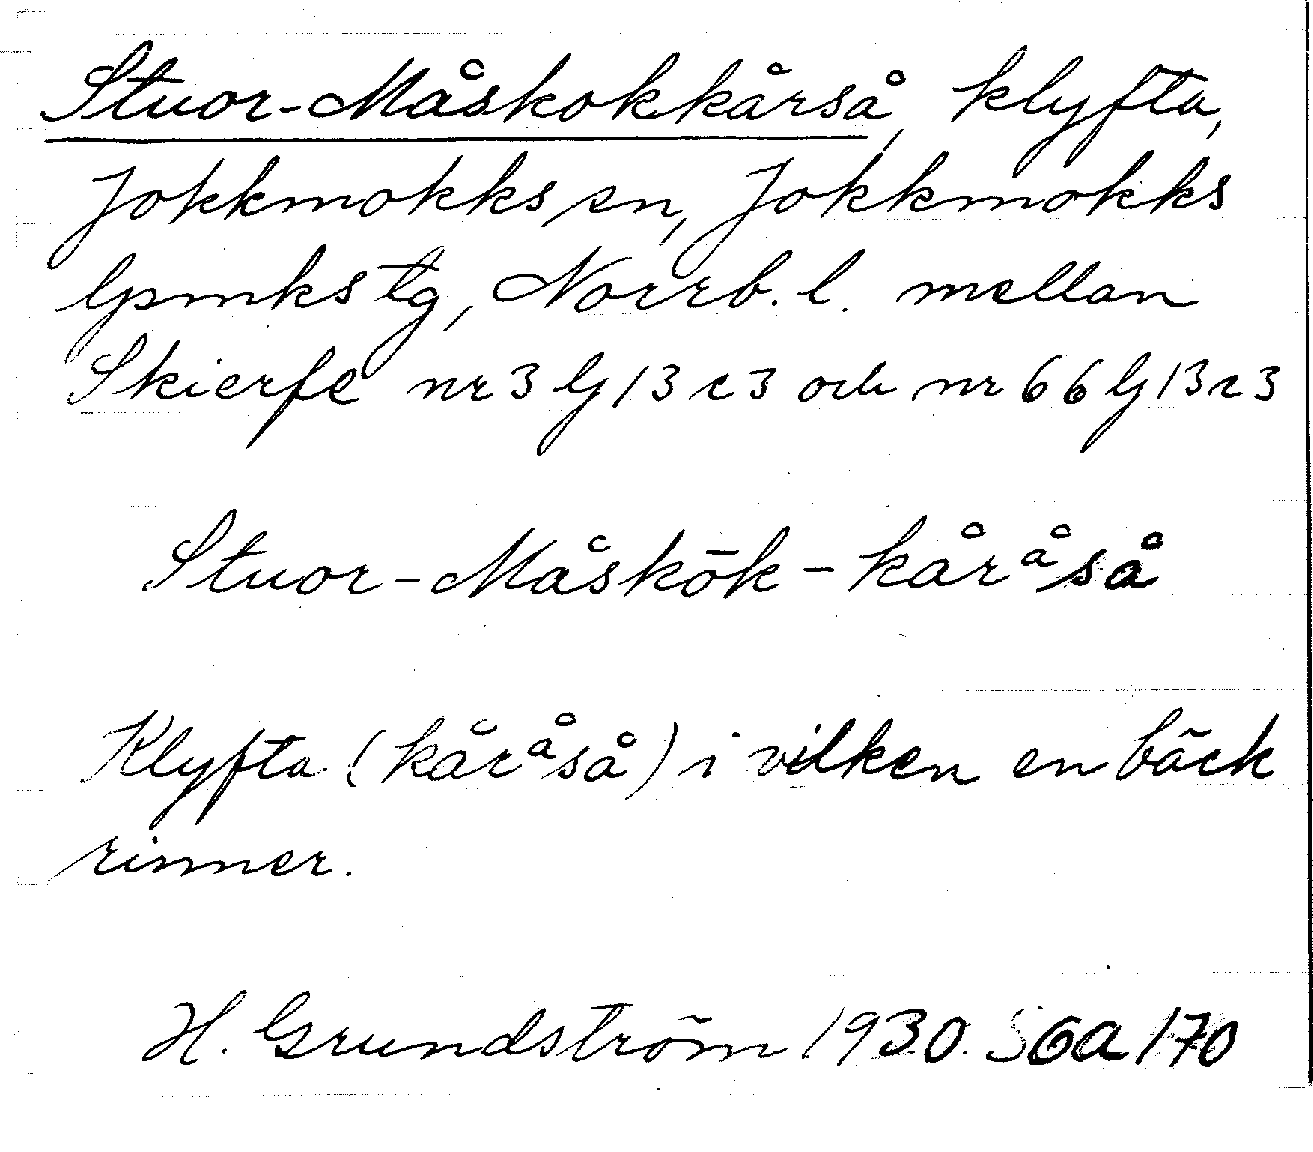 Stuor-Måskokkårså, klyfta,
Jokkmokks sn, Jokkmokks
lpmks tg, Norrb. l. mellan
Skierfe nr 3 bl 13 c 3 och nr 66 bl 13 c 3
Stuor-Måskōk-kåråså
Klyfta (kåråså) i vilken en bäck
rinner.
H. Grundström 1930. S6a 170